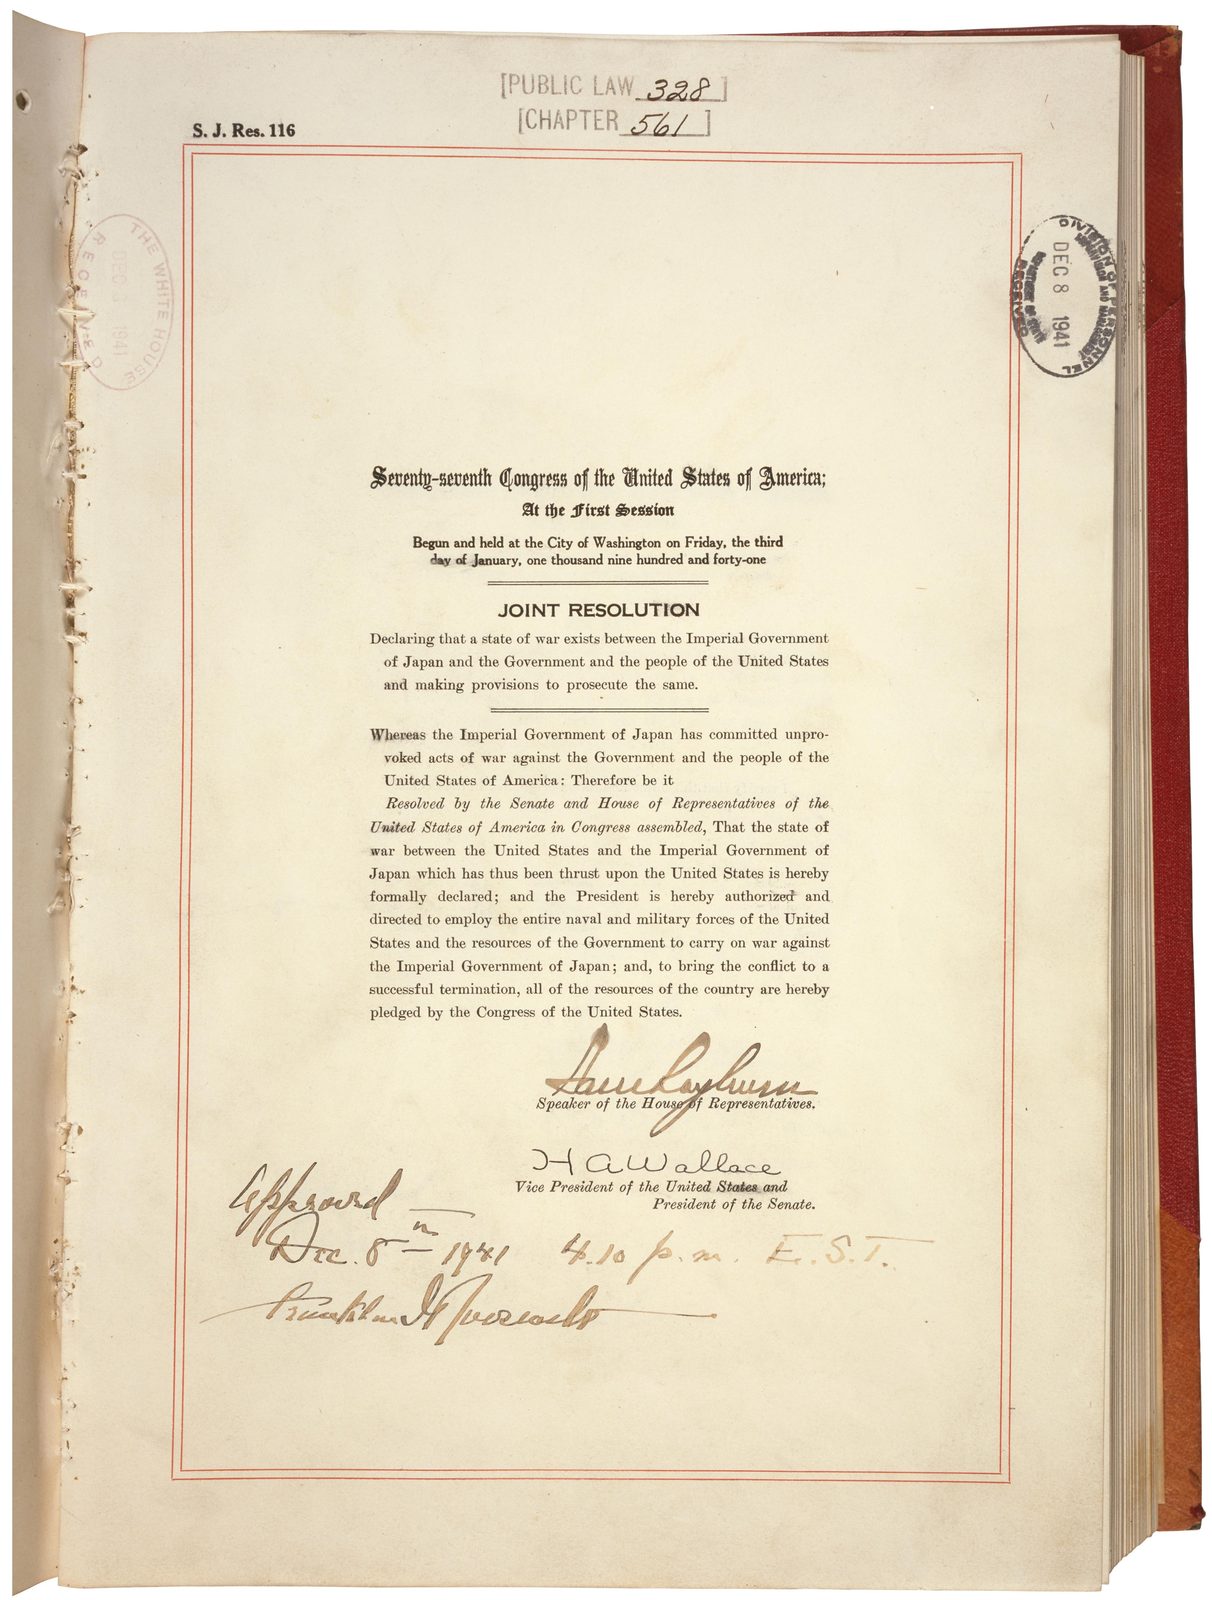 [PUBLIC LAW 328]
[CHAPTER 561]
S. J. Res. 116
THE WHITE HOUSE
DEC 8 1941
RECEIVED
DIVISION OF PERSONNEL
SUPERVISION AND MANAGEMENT
DEC 8 1941
DEPARTMENT OF STATE
RECEIVED
Seventy-seventh Congress of the United States of America;
At the First Session
Begun and held at the City of Washington on Friday, the third
day of January, one thousand nine hundred and forty-one
JOINT RESOLUTION
Declaring that a state of war exists between the Imperial Government
of Japan and the Government and the people of the United States
and making provisions to prosecute the same.
Whereas the Imperial Government of Japan has committed unpro-
voked acts of war against the Government and the people of the
United States of America: Therefore be it
Resolved by the Senate and House of Representatives of the
United States of America in Congress assembled, That the state of
war between the United States and the Imperial Government of
Japan which has thus been thrust upon the United States is hereby
formally declared; and the President is hereby authorized and
directed to employ the entire naval and military forces of the United
States and the resources of the Government to carry on war against
the Imperial Government of Japan; and, to bring the conflict to a
successful termination, all of the resources of the country are hereby
pledged by the Congress of the United States.
Sam Rayburn
Speaker of the House of Representatives.
H A Wallace
Vice President of the United States and
President of the Senate.
Approved
Dec. 8th 1941 4.10 p.m. E.S.T.
Franklin D Roosevelt